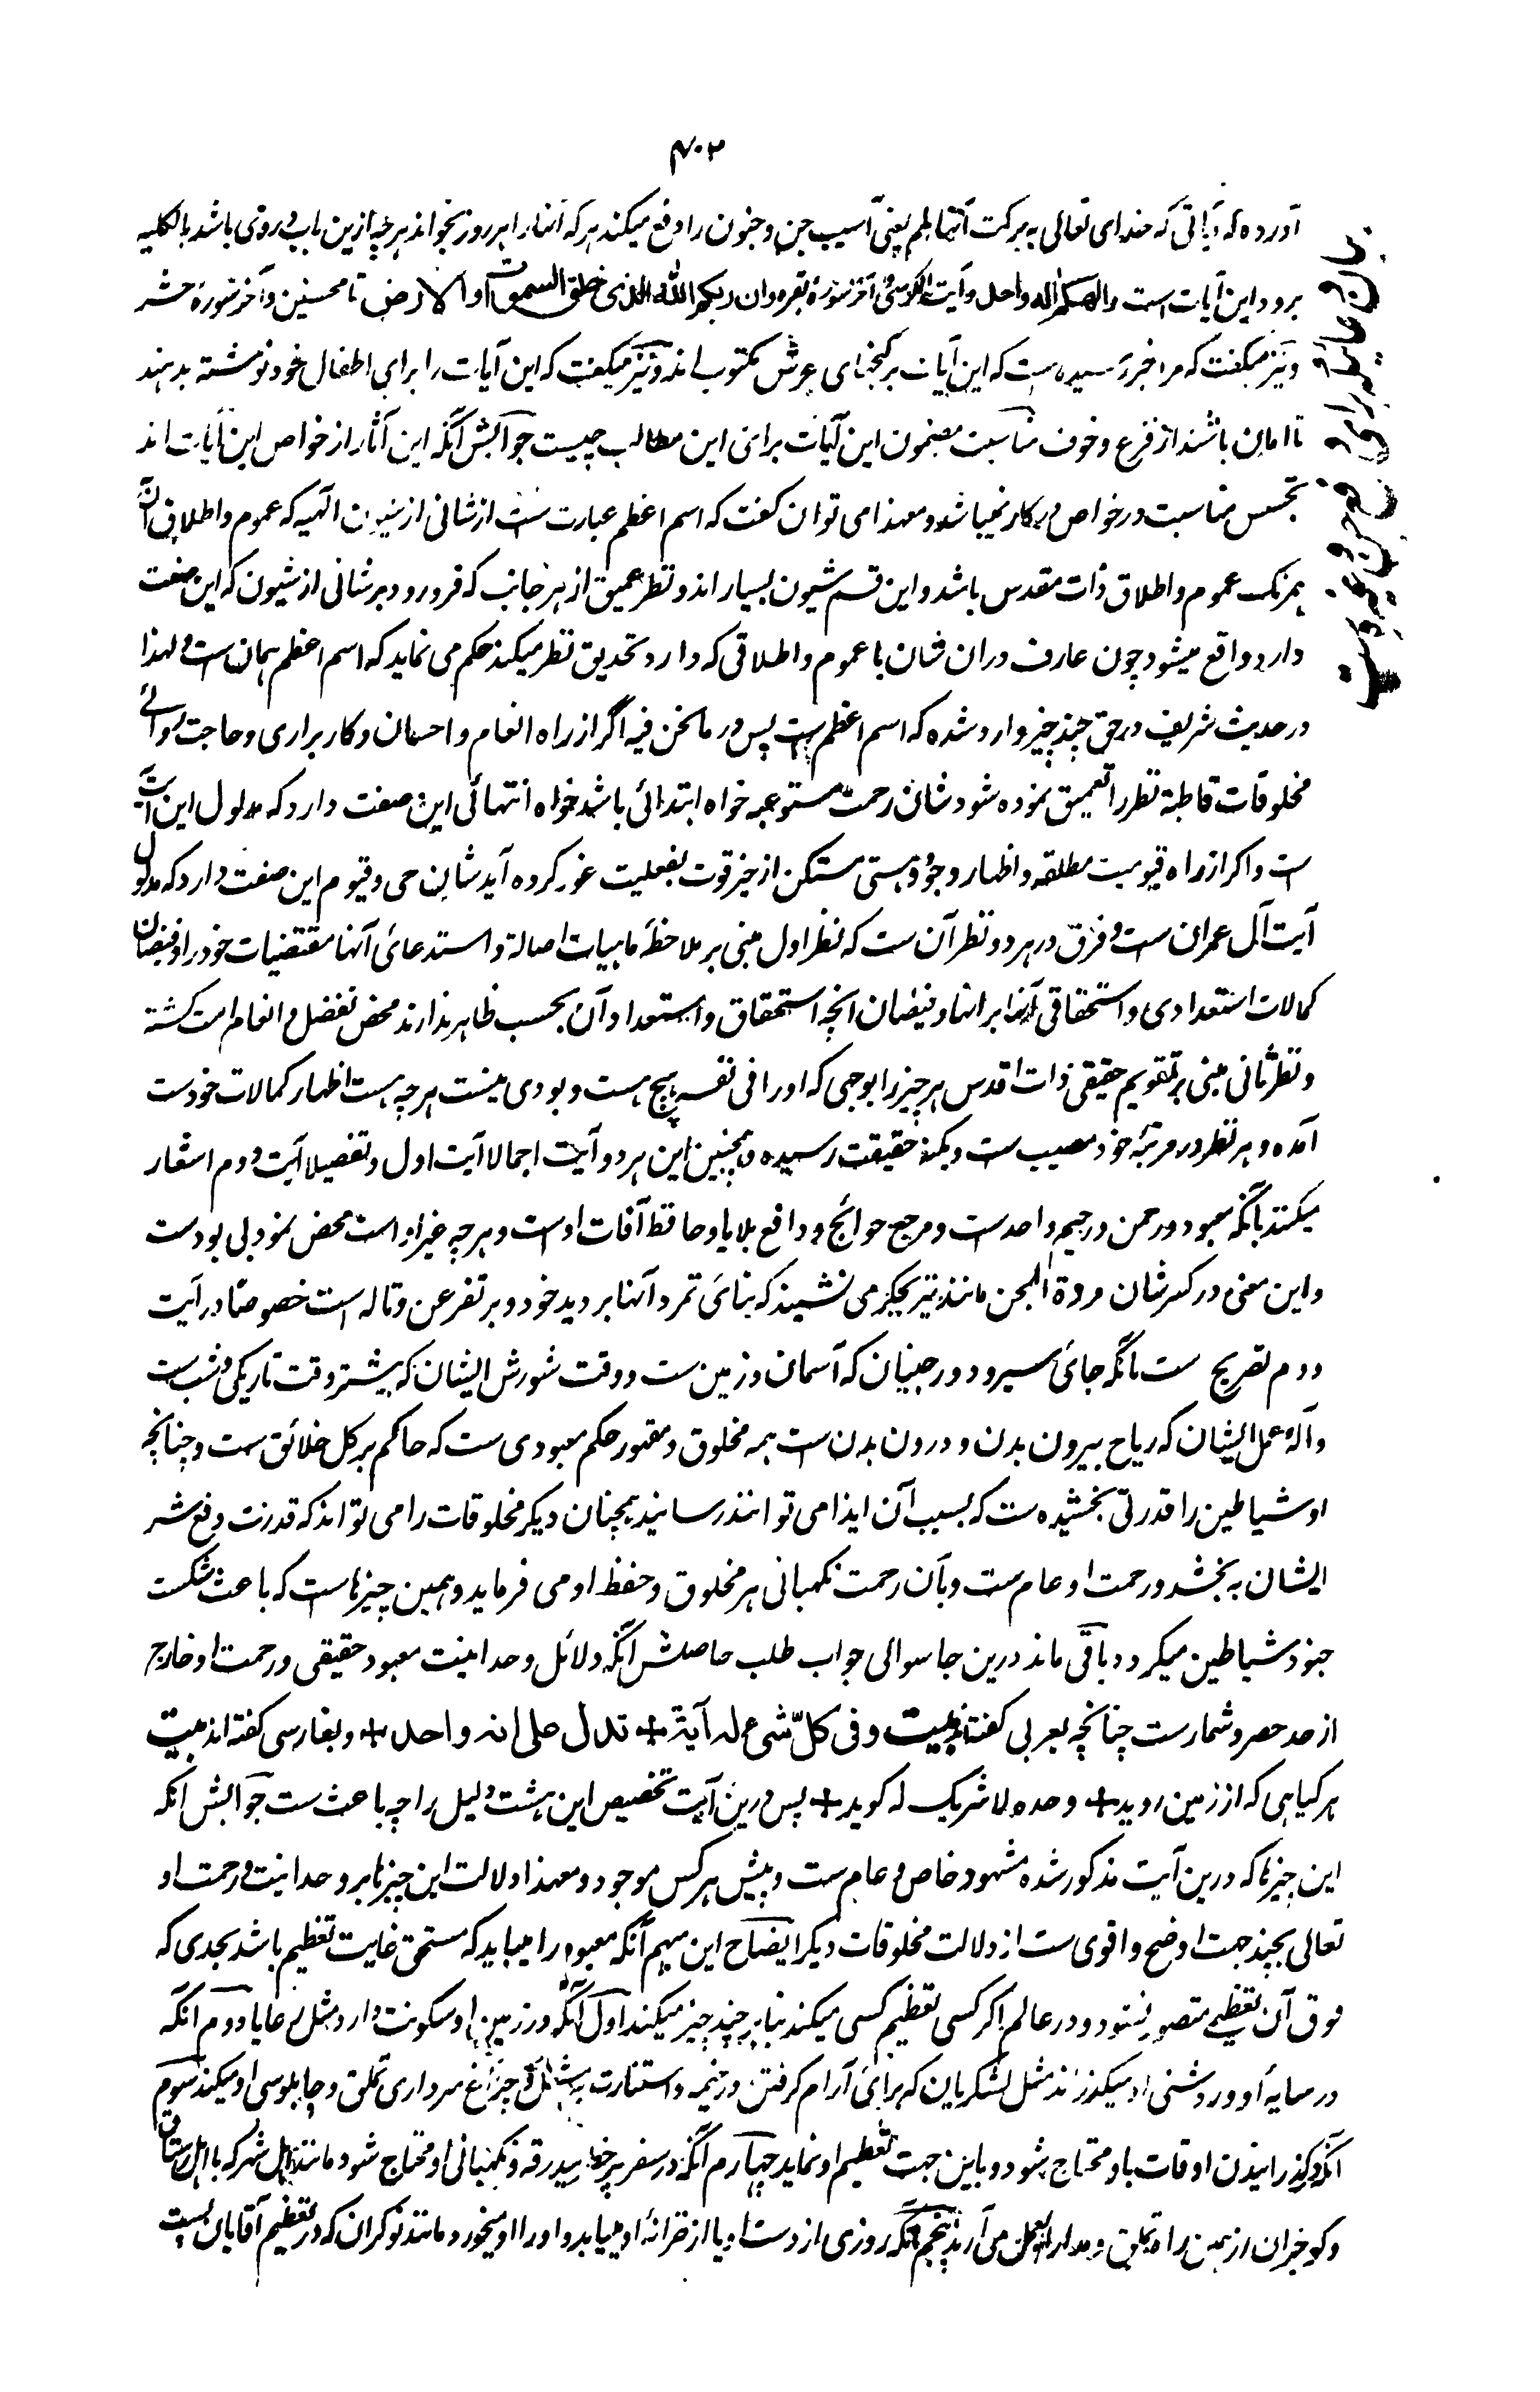 ۴۰۲
آورده که آیاتی که خدای تعالی به برکت آنها لمم یعنی آسیب جن و جنون را دفع میکند هر که آنها را هر روز بخواند هر چه ازین باب بروی باشد بالکلیه
برود این آیات است والهکم اله واحد و آیت الکرسی و آخر سورهٔ بقره و ان ربکم الله الذی خلق السموات والارض تا محسنین و آخر سورهٔ حشر
و نیز میگفت که مرا خبر رسیده است که این آیات بر کنجهای عرش مکتوب اند و نیز میگفت که این آیات را برای اطفال خود نوشته بدهید
تا امان باشند از فزع و خوف مناسبت مضمون این آیات برای این مطالب چیست جوابش آنکه این آثار از خواص این آیات اند
تجسس مناسبت در خواص درکار نمیباشد و معهذا می توان گفت که اسم اعظم عبارت ست از شانی از شیون الهیه که عموم و اطلاق آن
همرنگ عموم و اطلاق ذات مقدس باشد و این قسم شیون بسیار اند و نظر عمیق از هر جانب که فرو رود بر شانی از شیون که این صفت
دارد واقع میشود چون عارف دران شان با عموم و اطلاقی که دارد تحدیق نظر میکند حکم می نماید که اسم اعظم همان ست و لهذا
در حدیث شریف در حق چند چیز وارد شده که اسم اعظم ست پس در ما نحن فیه اگر از راه انعام و احسان و کاربراری و حاجت روائے
مخلوقات قاطبة نظر را تعمیق نموده شود شان رحمت مستوعبه خواه ابتدائی باشد خواه انتهائی این صفت دارد که مدلول این آیت
ست و اگر از راه قیومیت مطلقه و اظهار وجود و هستی مستکن از حیز قوت بفعلیت غور کرده آید شان حی و قیوم این صفت دارد که مدلول
آیت آل عمران ست و فرق در هر دو نظر آن ست که نظر اول مبنی بر ملاحظهٔ ماهیات اصالة و استدعای آنها مقتضیات خود را و فیضان
کمالات استعدادی و استحقاقی آنها بر انها و فیضان انچه استحقاق و استعداد آن بحسب ظاهر ندارند محض تفضل و انعام است گشته
و نظر ثانی مبنی بر تقویم حقیقی ذات اقدس هر چیز را بوجهی که او را فی نفسه هیچ هست و بودی نیست هر چه هست اظهار کمالات خودست
آمده و هر نظر در مرتبهٔ خود مصیب ست و بکنه حقیقت رسیده و همچنین این هر دو آیت اجمالا آیت اول و تفصیلا آیت دوم اشعار
میکنند بآنکه معبود و رحمن و رحیم واحدست و مرجع حوائج و دافع بلایا و حافظ آفات اوست و هر چه غیر او است محض نمود بی بودست
و این معنی در کسر شان مردة الجن مانند تیر بجگر می نشیند که بنای تمرد آنها بر دید خود و بر تفرعن و تاله است خصوصا در آیت
دوم تصریح ست بآنکه جای سیر و دور جنیان که آسمان و زمین ست و وقت شورش ایشان که بیشتر وقت تاریکی شب ست
و آلهٔ عمل ایشان که ریاح بیرون بدن و درون بدن ست همه مخلوق و مقهور حکم معبودی ست که حاکم بر کل خلائق ست و چنانچه
او شیاطین را قدرتی بخشیده ست که بسبب آن ایذا می توانند رسانید همچنان دیگر مخلوقات را می تواند که قدرت دفع شر
ایشان به بخشد و رحمت او عام ست و بآن رحمت نگهبانی هر مخلوق و حفظ او می فرماید و همین چیزها ست که باعث شکست
جنود شیاطین میگردد باقی ماند درین جا سوالی جواب طلب حاصلش آنکه دلائل وحدانیت معبود حقیقی و رحمت او خارج
از حد حصر و شمار ست چنانچه بعربی گفته اند بیت وفی کل شیء له آیة + تدل علی انه واحد + و بفارسی گفته اند بیت
هر گیاهی که از زمین روید + وحده لا شریک له گوید + پس درین آیت تخصیص این هشت دلیل را چه باعث ست جوابش آنکه
این چیزها که درین آیت مذکور شده مشهود خاص و عام ست و پیش هر کس موجود و معهذا دلالت این چیزها بر وحدانیت و رحمت او
تعالی بچند جهت اوضح و اقوی ست از دلالت مخلوقات دیگر ایضاح این مبهم آنکه معبود را میباید که مستحق غایت تعظیم باشد بحدی که
فوق آن تعظیمے متصور نشود و در عالم اگر کسی تعظیم کسی میکند بنا بر چند چیز میکند اول آنکه در زمین او سکونت دارد مثل رعایا دوم آنکه
در سایهٔ او و روشنی او میگذرند مثل لشکریان که برای آرام گرفتن در خیمه و استنارت به مشاعل و چراغ سرداری تملق و چاپلوسی او میکنند سوم
آنکه در گذرانیدن اوقات باو محتاج شود و باین جهت تعظیم او نماید چهارم آنکه در سفر پر خطر ببدرقه و نگهبانی او محتاج شود مانند اهل شهر که با اهل رستاق
و کوخیزان از همین راه تملق و مدارا بعمل می آرند پنجم آنکه روزی از دست او یا از خزانهٔ او مییابد و او را او میخورد مانند نوکران که در تعظیم آقایان پست